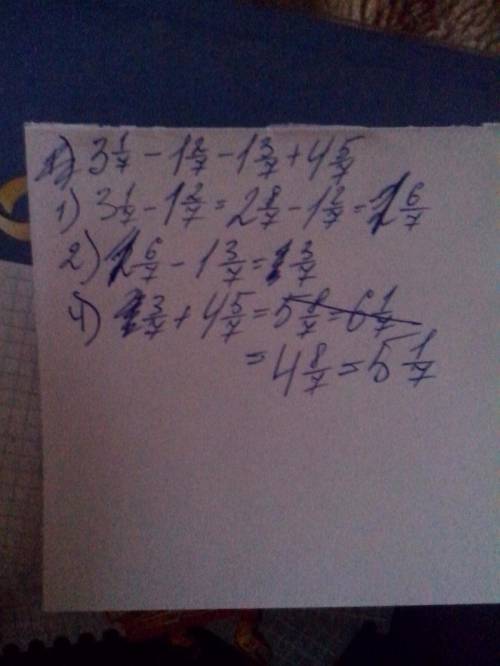 3 1/7 - 1 2/7 - 1 3/7 + 4 5/7
1) 3 1/7 - 1 2/7 = 2 8/7 - 1 2/7 = 1 6/7
2) 1 6/7 - 1 3/7 = 3/7
4) 3/7 + 4 5/7 = 5 8/7 = 6 1/7
= 4 8/7 = 5 1/7